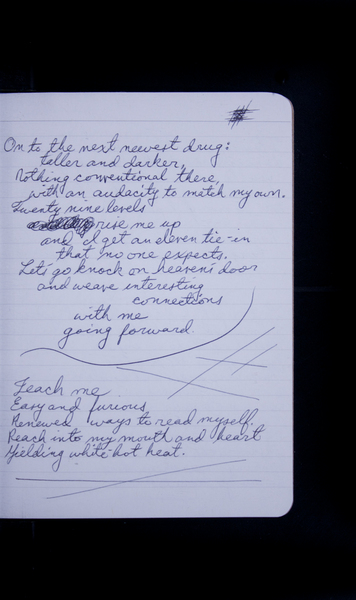 On to the next newest drug:
taller and darker,
Nothing conventional there,
with an audacity to match my own.
Twenty nine levels
rise me up
and I'd get an eleven tie-in
that no one expects.
Let's go knock on heaven's door
and weave interesting
connections
with me
going forward.
Teach me
Easy and furious
Renewed ways to read myself.
Reach into my mouth and heart
Yielding white hot heat.